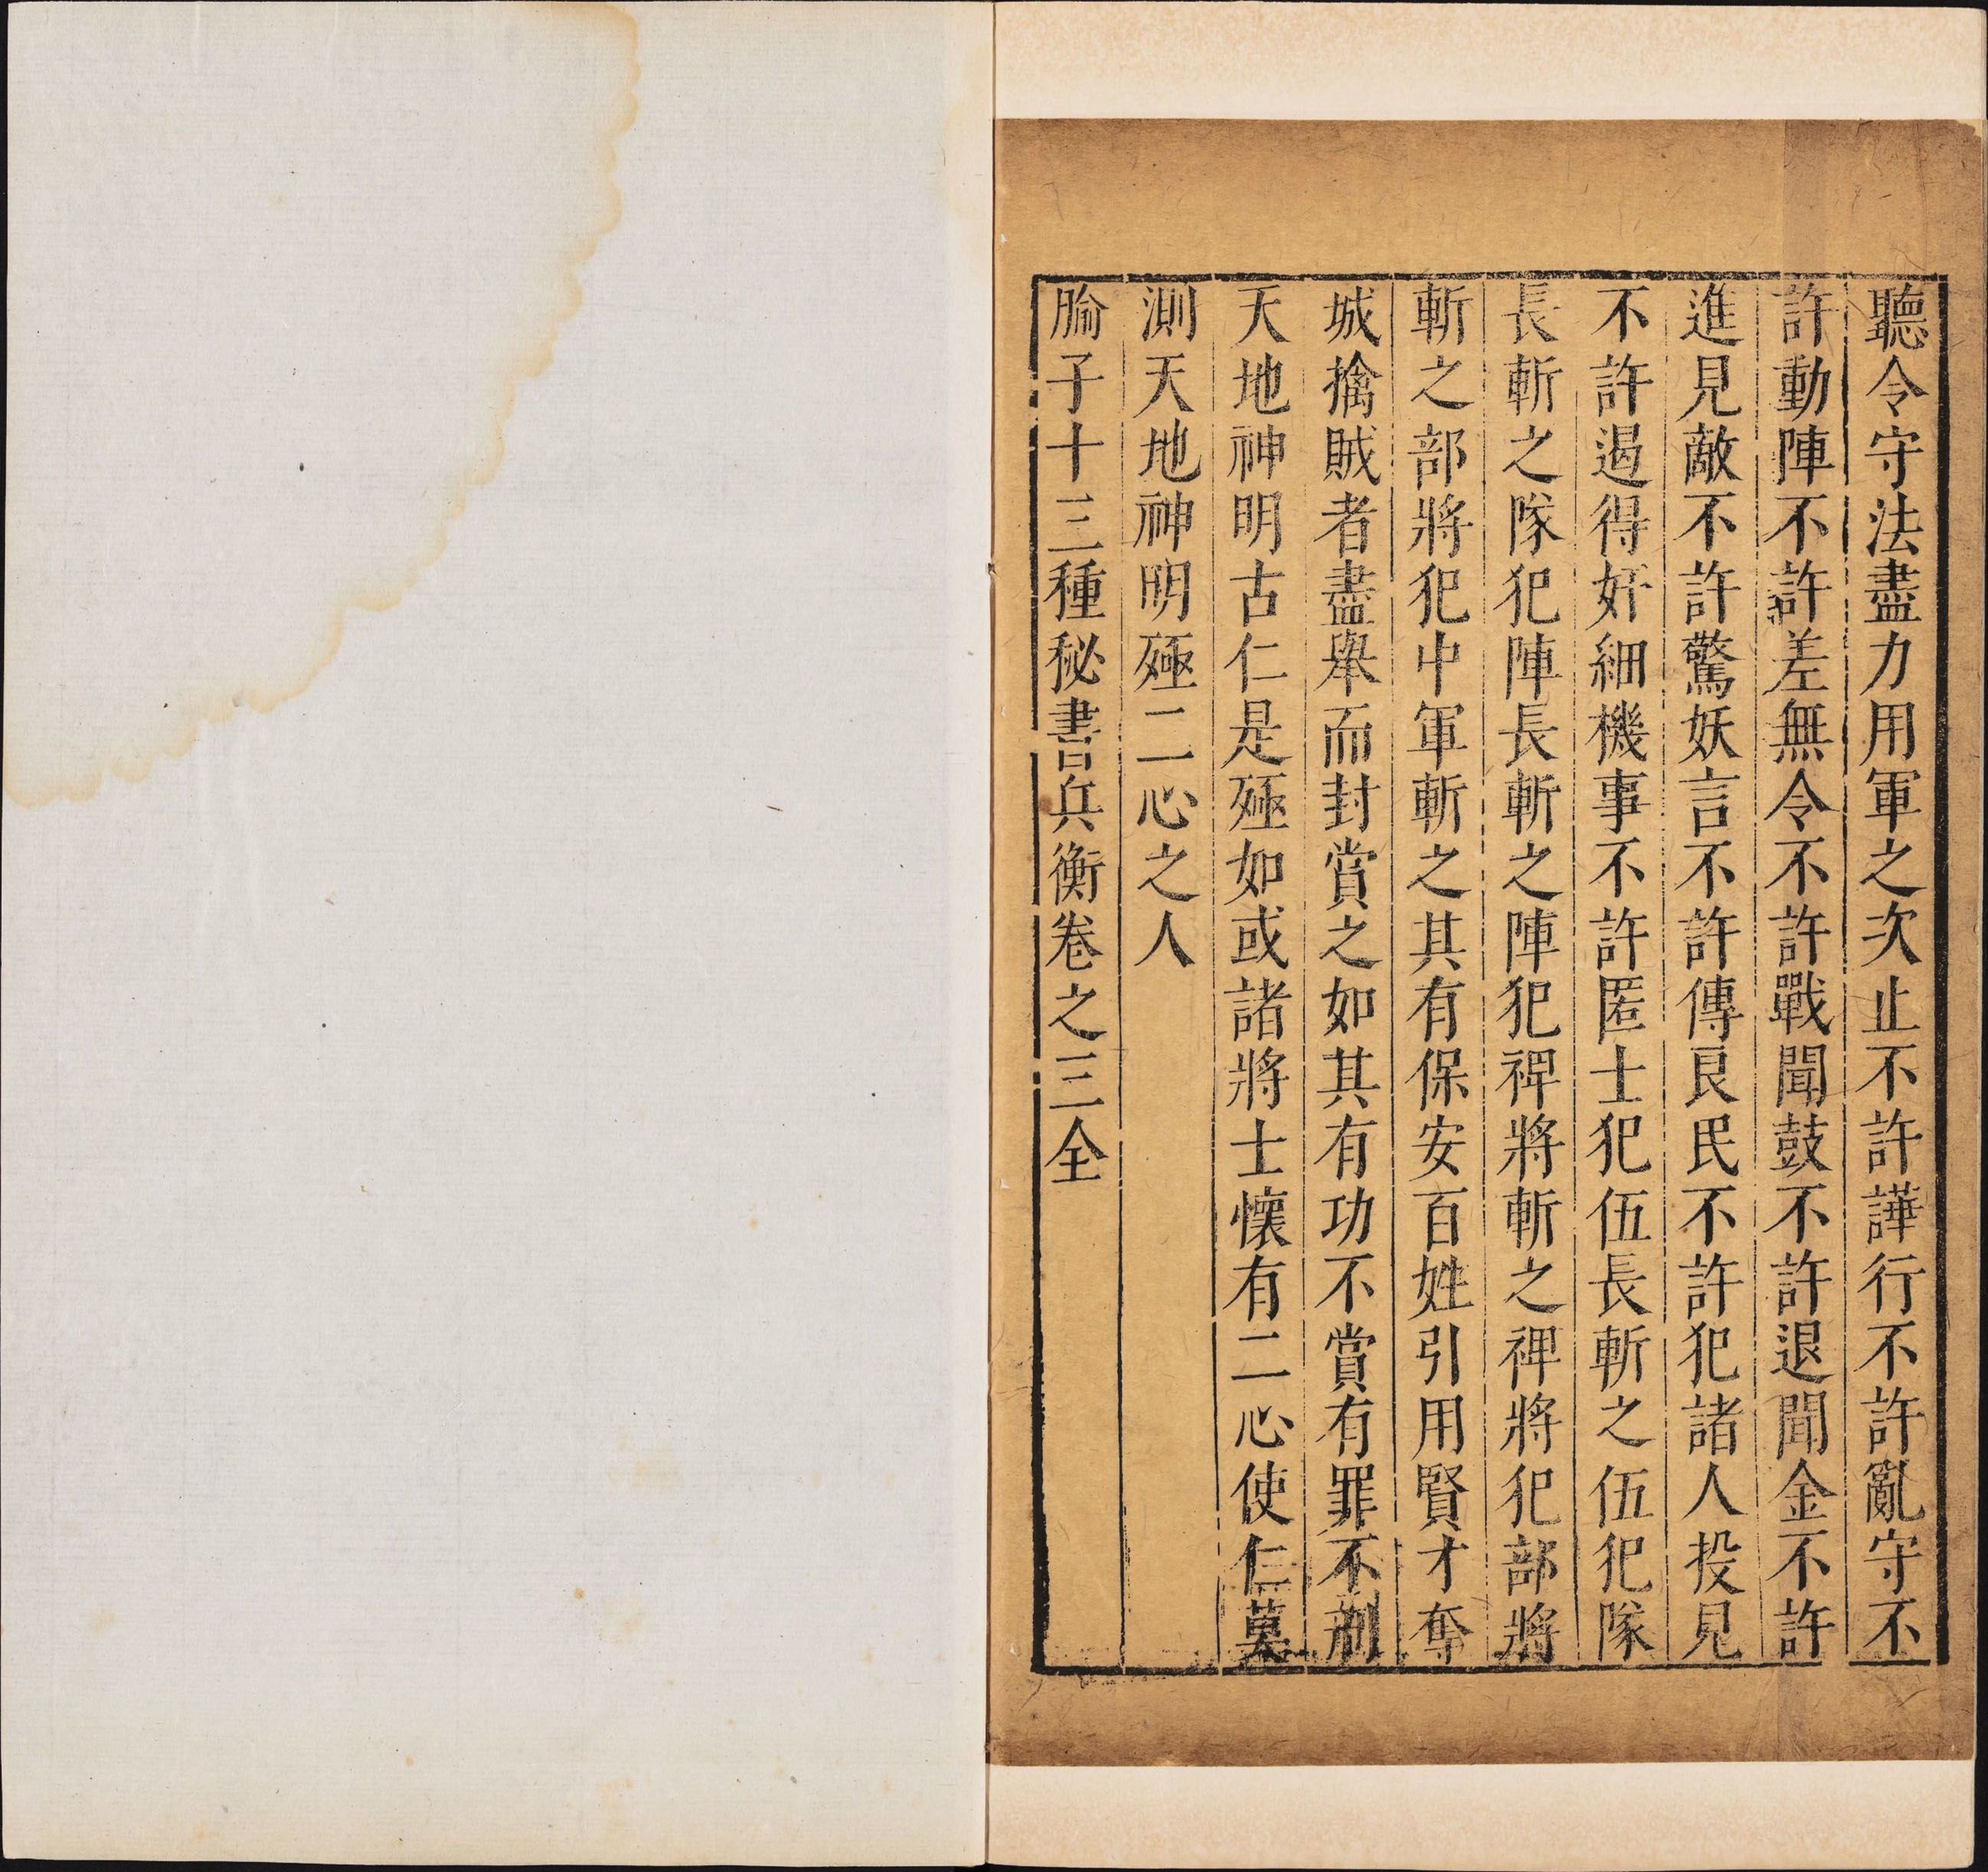 聽令守法盡力用軍之次止不許譁行不許亂守不
許動陣不許差無令不許戰聞鼓不許退聞金不許
進見敵不許驚妖言不許傳良民不許犯諸人投見
不許遏得奸細機事不許匿士犯伍長斬之伍犯隊
長斬之隊犯陣長斬之陣犯禆將斬之禆將犯部將
斬之部將犯中軍斬之其有保安百姓引用賢才奪
城擒賊者盡舉而封賞之如其有功不賞有罪不刑
天地神明古仁是殛如或諸將士懷有二心使仁莫
測天地神明殛二心之人
腀子十三種秘書兵衡卷之三全